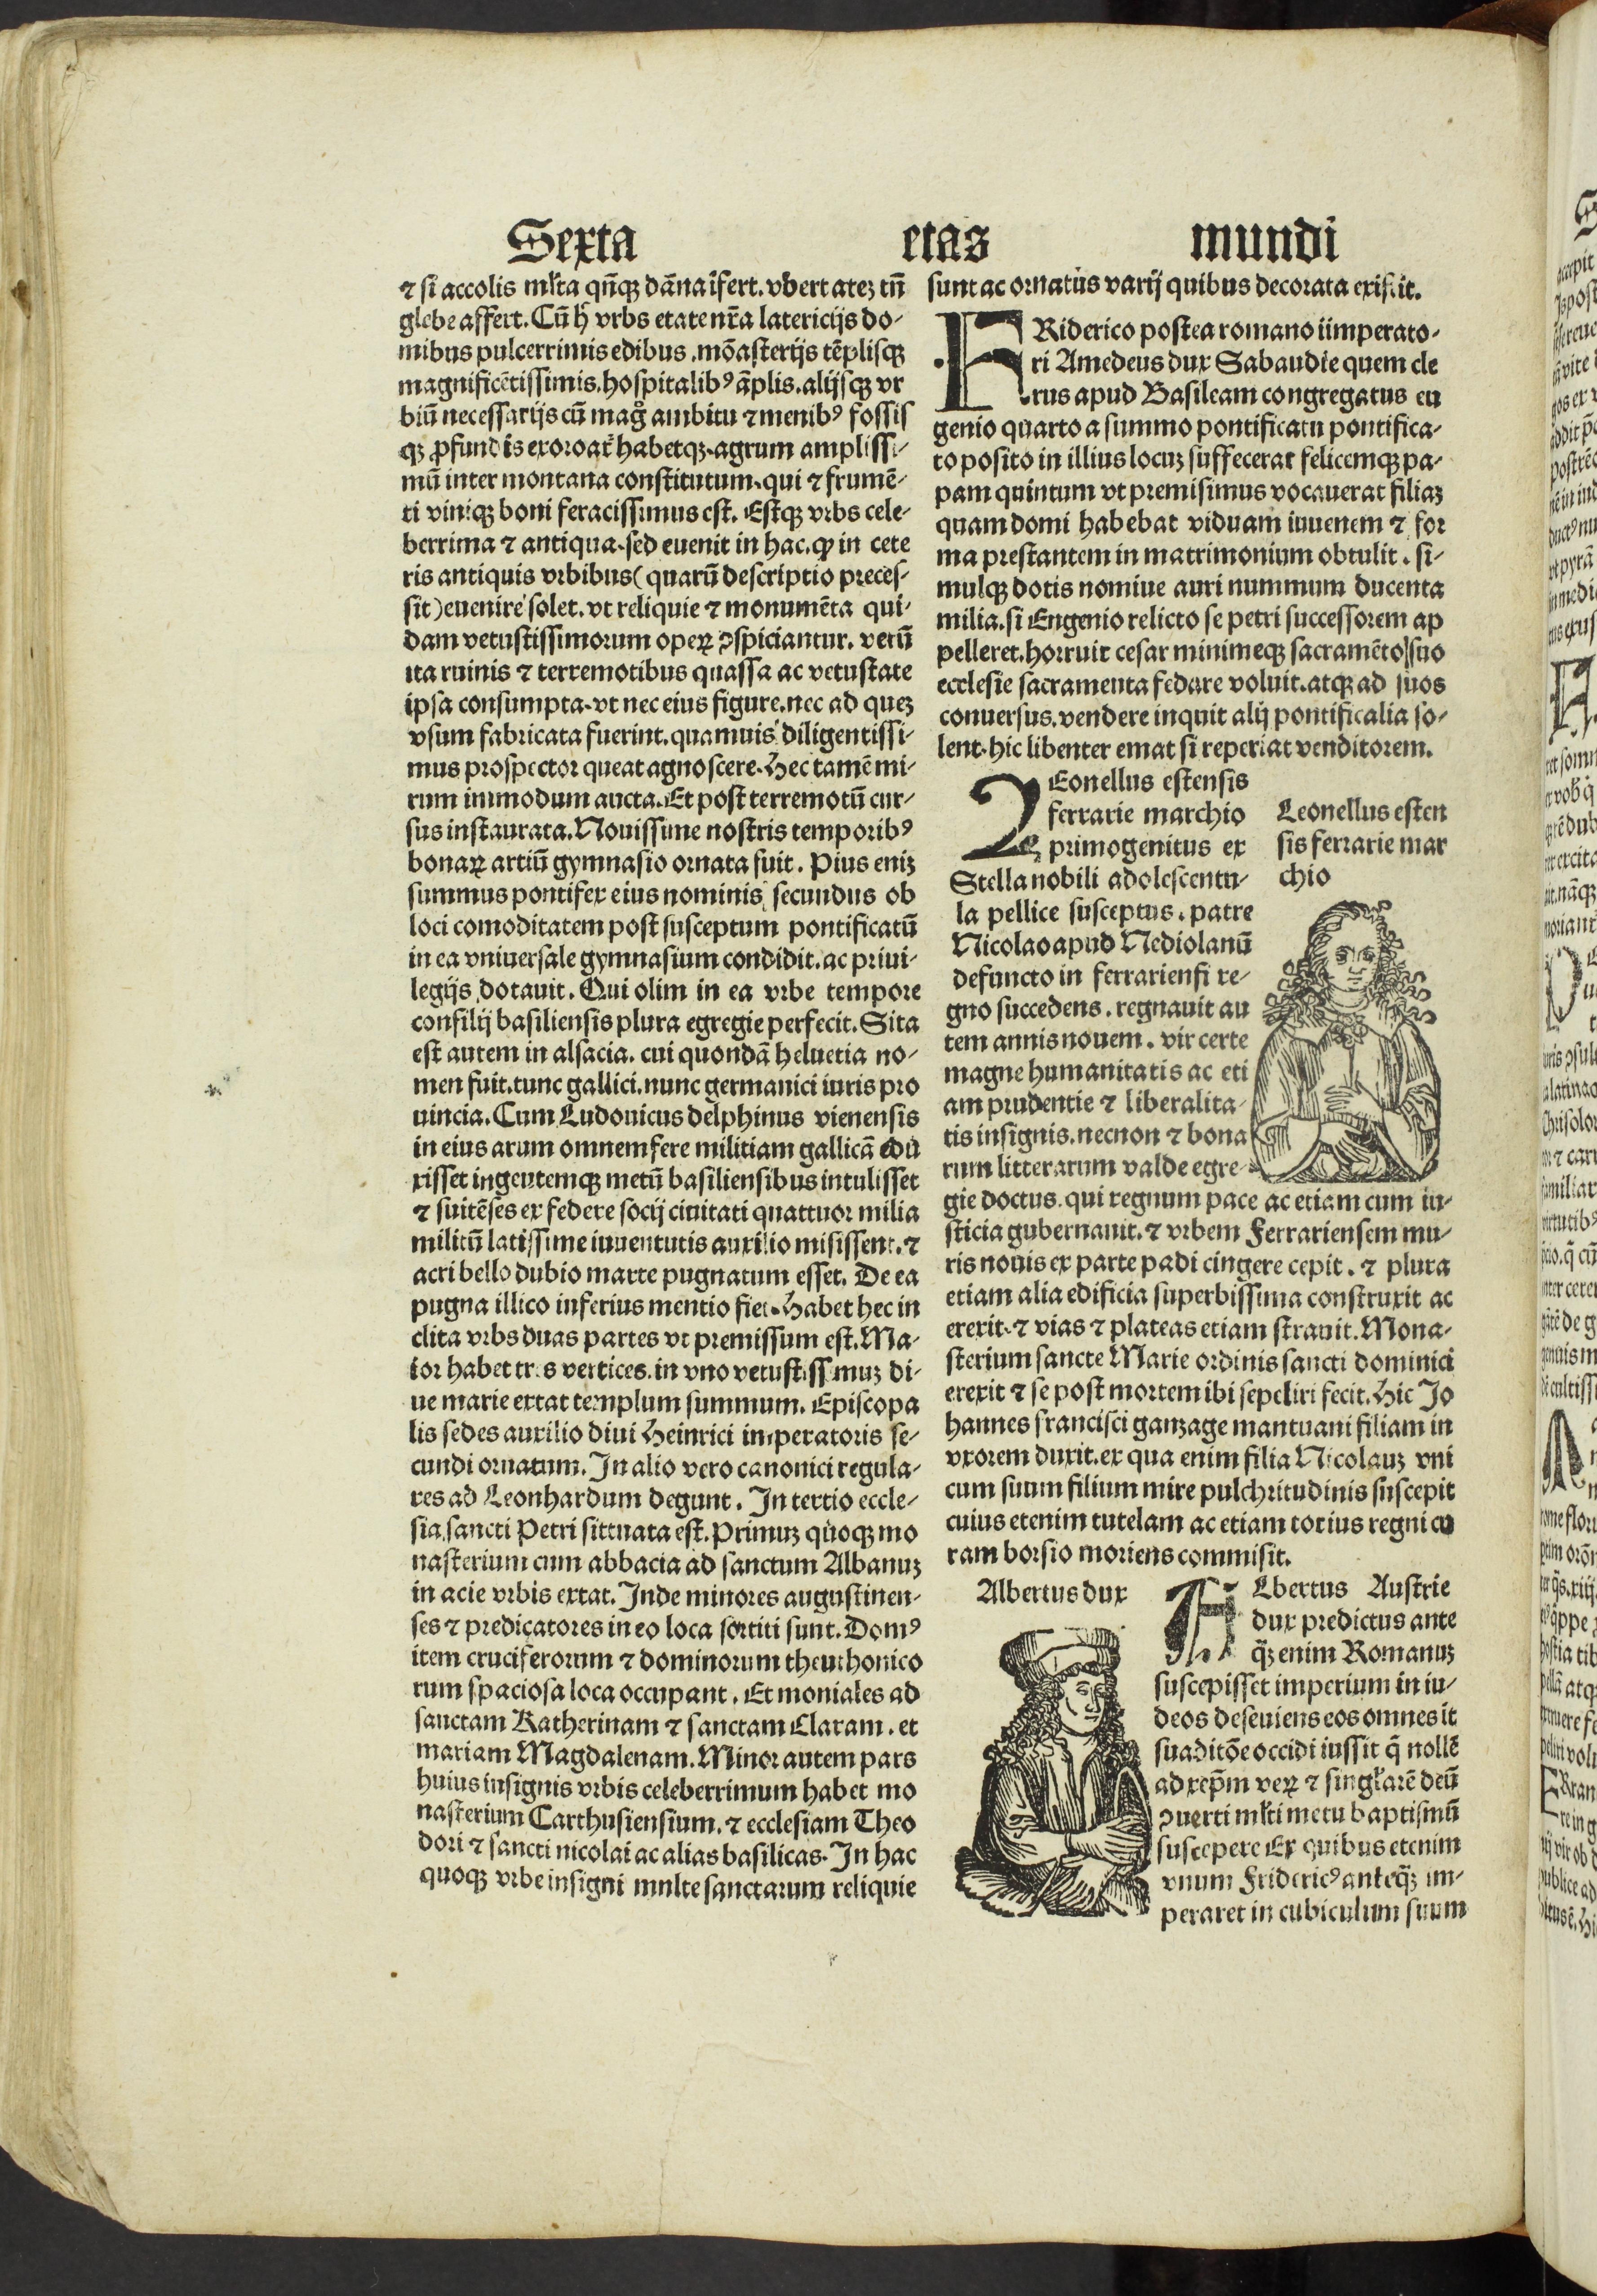 Sexta etas mundi
⁊ si accolis mlta qnqꝫ dāna ifert. vbertateꝫ tn̄
glebe affert. Cū h̄ vrbs etate nr̄a latericijs do-
mibus pulcerrimis edibus. mōasterijs tēplisqꝫ
magnificētissimis. hospitalibꝰ āplis. alijsqꝫ vr
biū necessarijs cū mag ambitu ⁊ menibꝰ fossis
qꝫ ꝓfundis exoroat habetqꝫ. agrum amplissi-
mū inter montana constitutum. qui ⁊ frumē-
ti viniqꝫ boni feracissimus est. Estqꝫ vrbs cele-
berrima ⁊ antiqua. sed euenit in hac. ꝙ in cete
ris antiquis vrbibus (quarū descriptio preces-
sit) euenire solet. vt reliquie ⁊ monumēta qui-
dam vetustissimorum operꝝ ꝯspiciantur. verū
ita ruinis ⁊ terremotibus quassa ac vetustate
ipsa consumpta. vt nec eius figure. nec ad queꝫ
vsum fabricata fuerint. quamuis diligentissi-
mus prospector queat agnoscere. Hec tamē mi-
rum inmodum aucta. Et post terremotū cur-
sus instaurata. Nouissime nostris temporibꝰ
bonaꝝ artiū gymnasio ornata fuit. Pius eniꝫ
summus pontifex eius nominis secundus ob
loci comoditatem post susceptum pontificatū
in ea vniuersale gymnasium condidit. ac priui-
legijs dotauit. Qui olim in ea vrbe tempore
consilij basiliensis plura egregie perfecit. Sita
est autem in alsacia. cui quondā heluetia no-
men fuit. tunc gallici. nunc germanici iuris pro
uincia. Cum Ludouicus delphinus vienensis
in eius arum omnem fere militiam gallicā edu
xisset ingentemqꝫ metū basiliensibus intulisset
⁊ suitēses ex federe socij ciuitati quattuor milia
militū latissime iuuentutis auxilio misissent. ⁊
acri bello dubio marte pugnatum esset. De ea
pugna illico inferius mentio fiet. Habet hec in
clita vrbs duas partes vt premissum est. Ma-
ior habet tres vertices. in vno vetustissimuꝫ di-
ue marie extat templum summum. Episcopa
lis sedes auxilio diui Heinrici imperatoris se-
cundi ornatum. In alio vero canonici regula-
res ad Leonhardum degunt. In tertio eccle-
sia sancti Petri sittuata est. Primuꝫ quoqꝫ mo
nasterium cum abbacia ad sanctum Albanuꝫ
in acie vrbis extat. Inde minores augustinen-
ses ⁊ predicatores in eo loca sortiti sunt. Domꝰ
item cruciferorum ⁊ dominorum theuthonico
rum spaciosa loca occupant. Et moniales ad
sanctam Katherinam ⁊ sanctam Claram. et
mariam Magdalenam. Minor autem pars
huius insignis vrbis celeberrimum habet mo
nasterium Carthusiensium. ⁊ ecclesiam Theo
dori ⁊ sancti nicolai ac alias basilicas. In hac
quoqꝫ vrbe insigni mnlte sanctarum reliquie
sunt ac ornatus varij quibus decorata existit.
FRiderico postea romano iimperato-
ri Amedeus dux Sabaudie quem cle
rus apud Basileam congregatus eu
genio quarto a summo pontificatu pontifica-
to posito in illius locuꝫ suffecerat felicemqꝫ pa-
pam quintum vt premisimus vocauerat filiaꝫ
quam domi habebat viduam iuuenem ⁊ for
ma prestantem in matrimonium obtulit. si-
mulqꝫ dotis nomiue auri nummum ducenta
milia. si Engenio relicto se petri successorem ap
pelleret. horruit cesar minimeqꝫ sacramēto suo
ecclesie sacramenta fedare voluit. atqꝫ ad suos
conuersus. vendere inquit alij pontificalia so-
lent. hic libenter emat si reperiat venditorem.
LEonellus estensis
ferrarie marchio
primogenitus ex
Stella nobili adolescentu-
la pellice susceptus. patre
Nicolao apud Nediolanū
defuncto in ferrariensi re-
gno succedens. regnauit au
tem annis nouem. vir certe
magne humanitatis ac eti
am prudentie ⁊ liberalita-
tis insignis. necnon ⁊ bona
rum litterarum valde egre-
Leonellus esten
sis ferrarie mar
chio
gie doctus. qui regnum pace ac etiam cum iu-
sticia gubernauit. ⁊ vrbem Ferrariensem mu-
ris nouis ex parte padi cingere cepit. ⁊ plura
etiam alia edificia superbissima construxit ac
erexit. ⁊ vias ⁊ plateas etiam strauit. Mona-
sterium sancte Marie ordinis sancti dominici
erexit ⁊ se post mortem ibi sepeliri fecit. Hic Jo
hannes francisci ganzage mantuani filiam in
vxorem duxit. ex qua enim filia Nicolauꝫ vni
cum suum filium mire pulchritudinis suscepit
cuius etenim tutelam ac etiam totius regni cu
ram borsio moriens commisit.
Albertus dux
ALbertus Austrie
dux predictus ante
q̄ꝫ enim Romanuꝫ
suscepisset imperium in iu-
deos deseuiens eos omnes it
sua ditōe occidi iussit q̄ nollē
ad xepm verꝝ ⁊ singlarē deū
ꝯuerti mlti metu baptismū
suscepere Ex quibus etenim
vnum Fridericꝰ anteq̄ꝫ im-
peraret in cubiculum suum